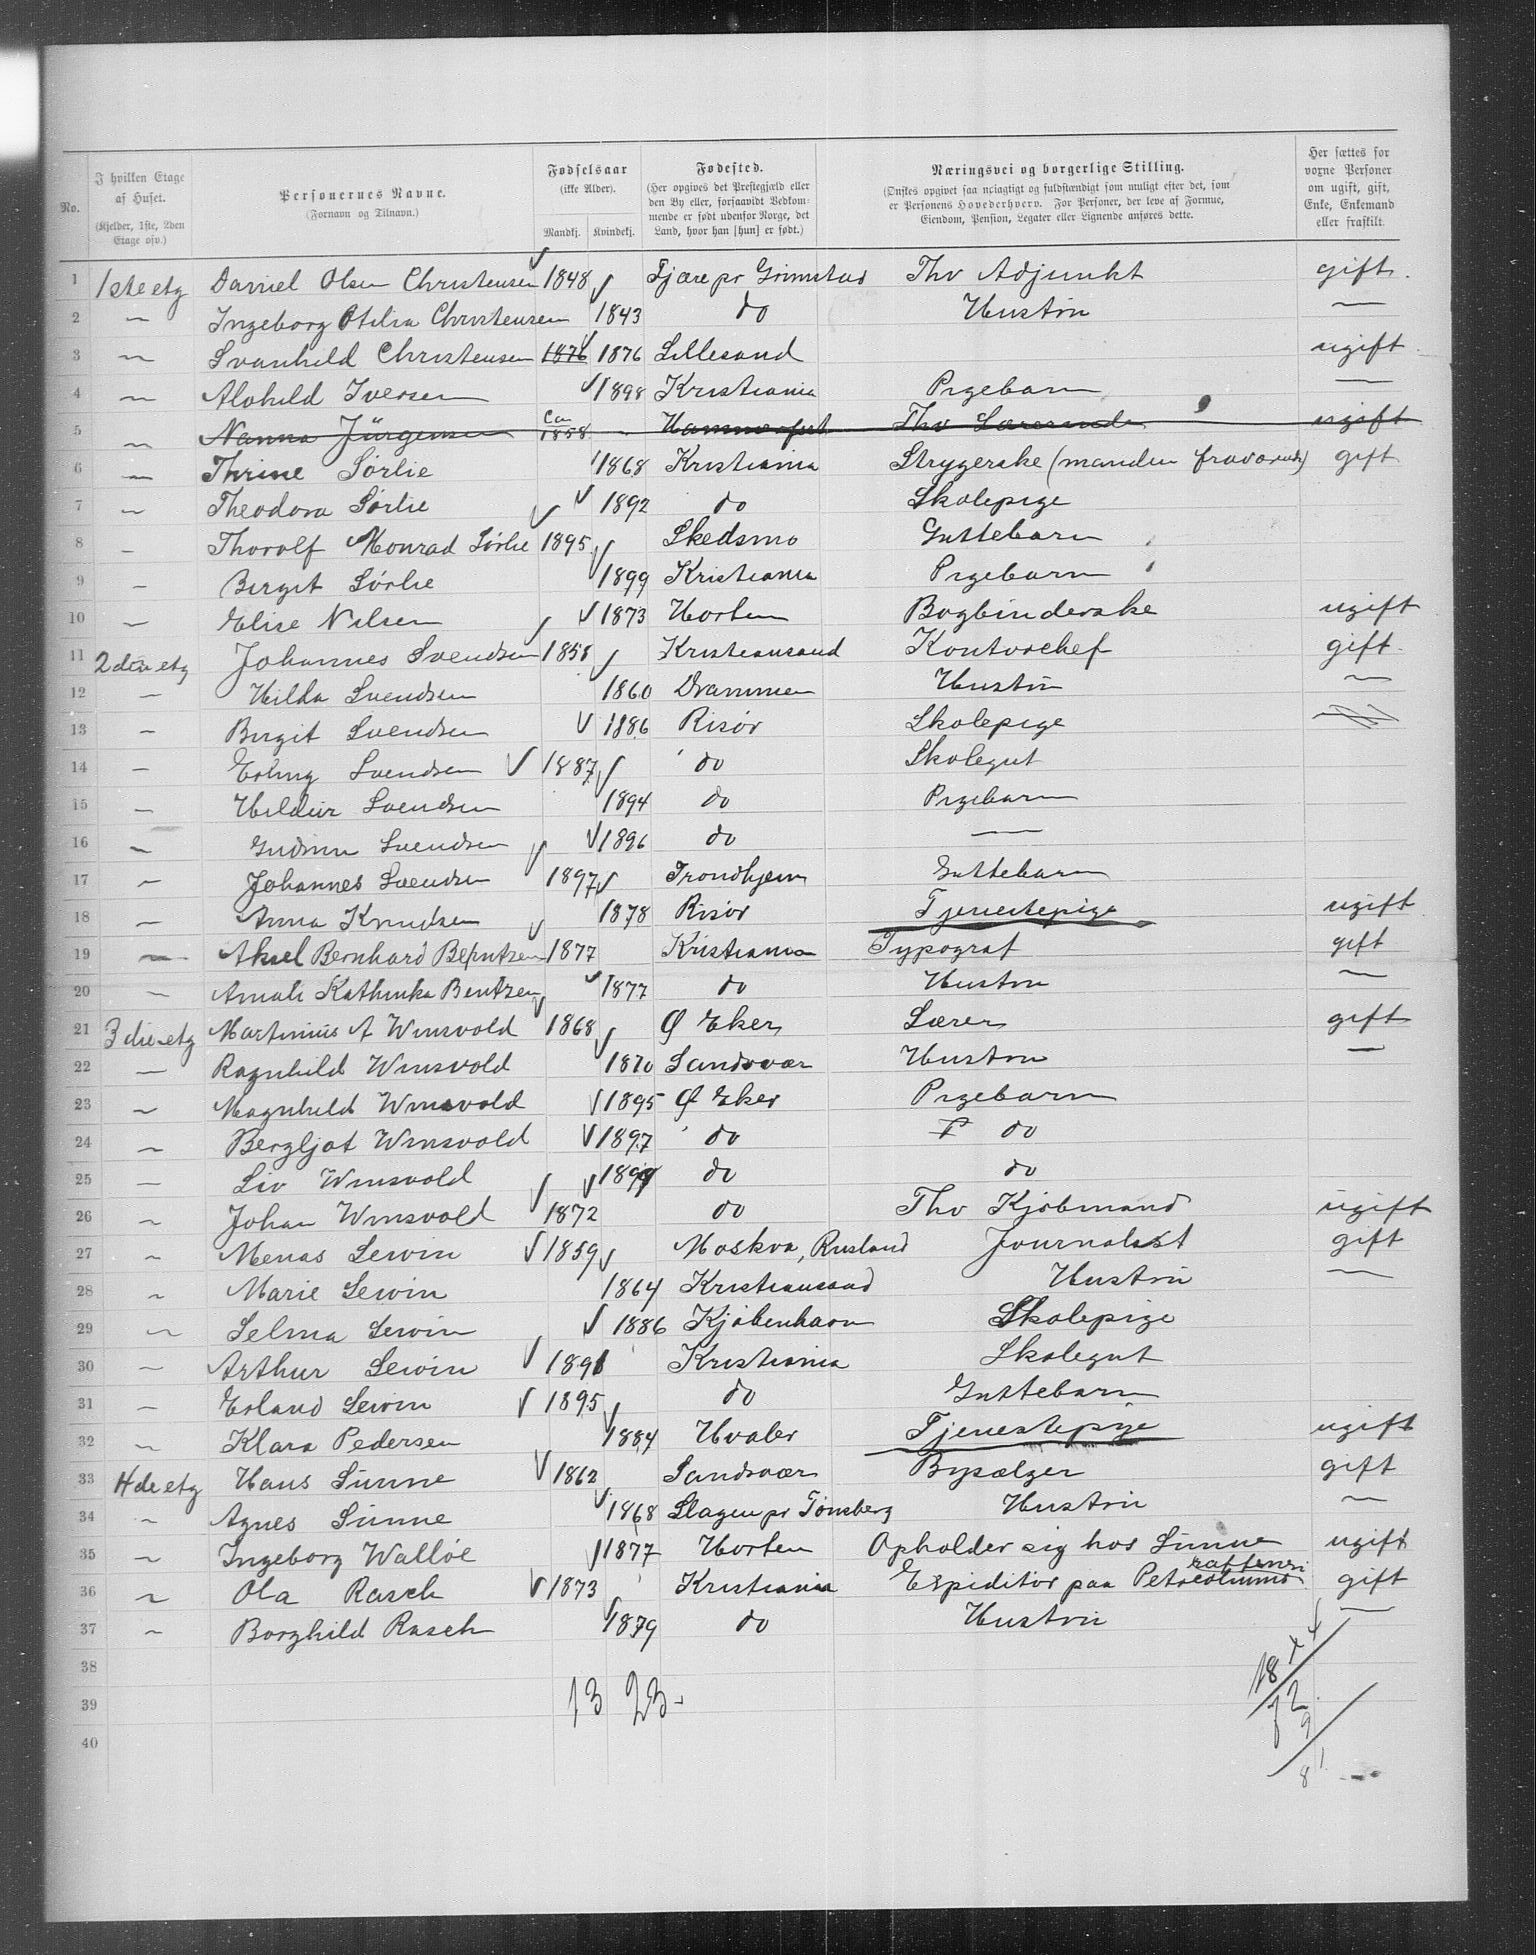 No. | I hvilken Etage af Huset. (Kjelder, 1ste, 2den Etage osv.) | Personernes Navne. (Fornavn og Tilnavn.) | Fødselsaar (ikke Alder). Mandkj. | Kvindekj. | Fødested. (Her opgives det Prestegjæld eller den By eller, forsaavidt Bedkommende er født udenfor Norge, det Land, hvor han [hun] er født.) | Næringsvei og borgerlige Stilling. (Ønskes opgivet saa nøiagtigt og fuldstændigt som muligt efter det, som er Personens Hovederhverv. For Personer, der leve af Formue, Eiendom, Pension, Legater eller Lignende anføres dette. | Her sættes for voxne Personer om ugift, gift, Enke, Enkemand eller fraskilt.
1 1ste etg Daniel Olsen Christensen 1848 Fjære pr Grimstad Fhv Adjunkt gift
2 — Ingeborg Otilia Christensen 1843 do Hustru —
3 — Svanhild Christensen 1876 1876 Lillesand ugift
4 — Alvhild Iversen 1898 Kristiania Pigebarn —
5 — Nanna Jürgensen Ca 1858 Hammerfest Fhv Lærerinde ugift
6 — Thrine Sørlie 1868 Kristiania Strygerske (manden fraværende) gift
7 — Theodora Sørlie 1892 do Skolepige
8 — Thorolf Monrad Sørlie 1895 Skedsmo Guttebarn
9 — Birgit Sørlie 1899 Kristiania Pigebarn
10 — Elise Nilsen 1873 Horten Bogbinderske ugift
11 2den etg Johannes Svendsen 1858 Kristiansand Kontorchef gift
12 — Hilda Svendsen 1860 Drammen Hustru —
13 — Birgit Svendsen 1886 Risør Skolepige
14 — Erling Svendsen 1887 do Skolegut
15 — Hildur Svendsen 1894 do Pigebarn
16 — Gudrun Svendsen 1896 do —
17 — Johannes Svendsen 1897 Trondhjem Guttebarn
18 — Anna Knudsen 1878 Risør Tjenestepige ugift
19 — Aksel Bernhard Berntzen 1877 Kristiania Typograf gift
20 — Amali Kathinka Bentzen 1877 do Hustru —
21 3die etg Martinius A Winsvold 1868 Ø Eker Lærer gift
22 — Ragnhild Winsvold 1870 Sandsvær Hustru —
23 — Magnhild Winsvold 1895 Ø Eker Pigebarn
24 — Bergljot Winsvold 1897 do P do
25 — Liv Winsvold 1899 do do
26 — Johan Winsvold 1872 do Fhv Kjøbmand ugift
27 — Menas Lewin 1859 Moskva, Rusland Journalist gift
28 — Marie Lewin 1864 Kristiansand Hustru —
29 — Selma Lewin 1886 Kjøbenhavn Skolepige
30 — Arthur Lewin 1891 Kristiania Skolegut
31 — Erland Lewin 1895 do Guttebarn
32 — Klara Pedersen 1884 Hvaler Tjenestepige ugift
33 4de etg Hans Sünne 1862 Sandsvær Bysælger gift
34 — Agnes Sünne 1868 Slagen pr Tönsberg Hustru —
35 — Ingeborg Walløe 1877 Horten Opholder sig hos Sünne ugift
36 — Ola Rasch 1873 Kristiania Expeditör paa Petroleums raffineri gift
37 — Borghild Rasch 1879 do Hustru —
38
39 13 23
40
18 x 4
72
9
81